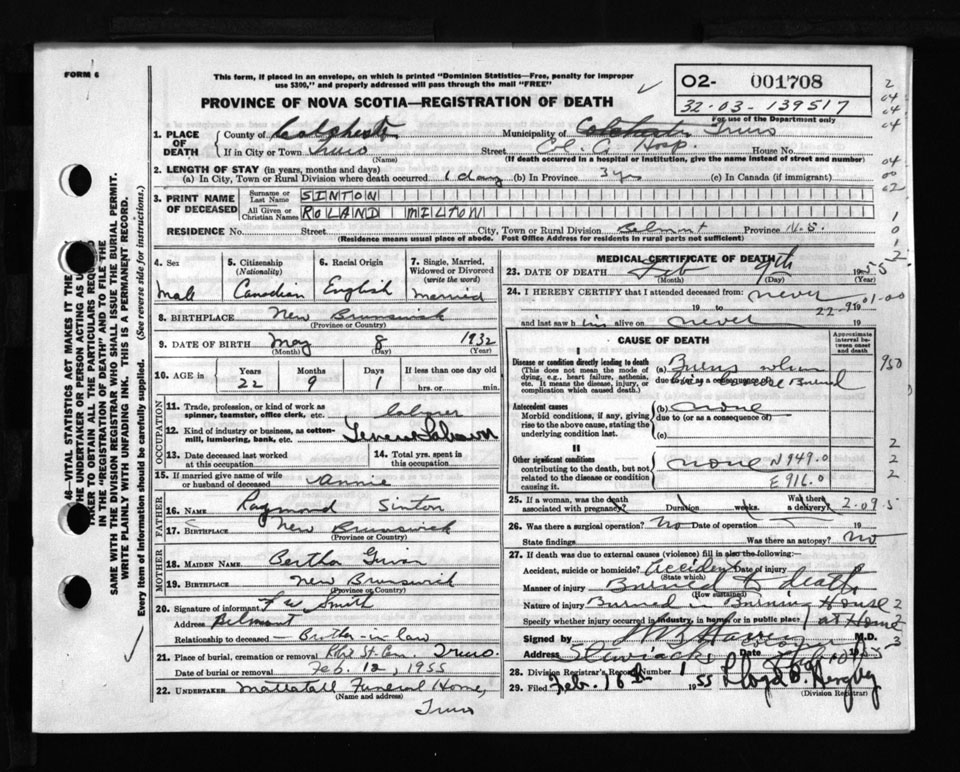 FORM 6
This form, if placed in an envelope, on which is printed "Dominion Statistics—Free, penalty for improper
use $300," and properly addressed will pass through the mail "FREE"
PROVINCE OF NOVA SCOTIA—REGISTRATION OF DEATH
02- 001708
32-03-139517
For use of the Department only
1. PLACE OF DEATH County of Colchester Municipality of Colchester Truro
If in City or Town Truro Street Hosp. House No.
(Name) (If death occurred in a hospital or institution, give the name instead of street and number)
2. LENGTH OF STAY (in years, months and days)
(a) In City, Town or Rural Division where death occurred 1 day (b) In Province 3 yrs (c) In Canada (if immigrant)
3. PRINT NAME OF DECEASED Surname or Last Name SINTON
All Given or Christian Names ROLAND MILTON
RESIDENCE No. Street City, Town or Rural Division Belmont Province N.S.
(Residence means usual place of abode. Post Office Address for residents in rural parts not sufficient)
46—VITAL STATISTICS ACT MAKES IT THE
THE UNDERTAKER OR PERSON ACTING AS U
TAKER TO OBTAIN ALL THE PARTICULARS REQU
IN THE "REGISTRATION OF DEATH" AND TO FILE THE
SAME WITH THE DIVISION REGISTRAR WHO SHALL ISSUE THE BURIAL PERMIT.
WRITE PLAINLY WITH UNFADING INK. THIS IS A PERMANENT RECORD.
Every item of information should be carefully supplied. (See reverse side for instructions.)
4. Sex Male
5. Citizenship (Nationality) Canadian
6. Racial Origin English
7. Single, Married, Widowed or Divorced (write the word) Married
8. BIRTHPLACE New Brunswick
(Province or Country)
9. DATE OF BIRTH May 8 1932
(Month) (Day) (Year)
10. AGE in Years Months Days If less than one day
22 9 1 hrs. or min.
OCCUPATION
11. Trade, profession, or kind of work as spinner, teamster, office clerk, etc. Labourer
12. Kind of industry or business, as cotton-mill, lumbering, bank, etc.
13. Date deceased last worked at this occupation
14. Total yrs. spent in this occupation
15. If married give name of wife or husband of deceased Annie
FATHER
16. NAME Raymond Sinton
17. BIRTHPLACE New Brunswick
(Province or Country)
MOTHER
18. MAIDEN NAME Bertha
19. BIRTHPLACE New Brunswick
(Province or Country)
20. Signature of informant F W Smith
Address Belmont
Relationship to deceased — Brother-in-law
21. Place of burial, cremation or removal Robie St. Cem. Truro
Date of burial or removal Feb. 12, 1955
22. UNDERTAKER Mattatall Funeral Home,
(Name and address)
Truro
MEDICAL CERTIFICATE OF DEATH
23. DATE OF DEATH Feb 9th 1955
(Month) (Day) (Year)
24. I HEREBY CERTIFY that I attended deceased from: never
19 to 22-9-01-00 19
and last saw him alive on never 19
CAUSE OF DEATH
Approximate interval between onset and death
I
Disease or condition directly leading to death
(This does not mean the mode of dying, e.g., heart failure, asthenia, etc. It means the disease, injury, or complication which caused death.)
(a) Burns when
due to (or as a consequence of)
house Burned
Antecedent causes
Morbid conditions, if any, giving rise to the above cause, stating the underlying condition last.
(b) none
due to (or as a consequence of)
(c)
II
Other significant conditions
contributing to the death, but not related to the disease or condition causing it.
none N949.0
E916.0
25. If a woman, was the death associated with pregnancy? Duration weeks. Was there a delivery? 2-09-5
26. Was there a surgical operation? No Date of operation
State findings Was there an autopsy? no
27. If death was due to external causes (violence) fill in also the following:—
Accident, suicide or homicide? Accident Date of injury 19
(State which)
Manner of injury Burned to death
(How sustained)
Nature of injury Burned in Burning House
Specify whether injury occurred in industry, in home, or in public place at Home
Signed by M.D.
Address Stewiacke Date
28. Division Registrar's Record Number 1
29. Filed Feb. 18th 1955 Lloyd
(Division Registrar)